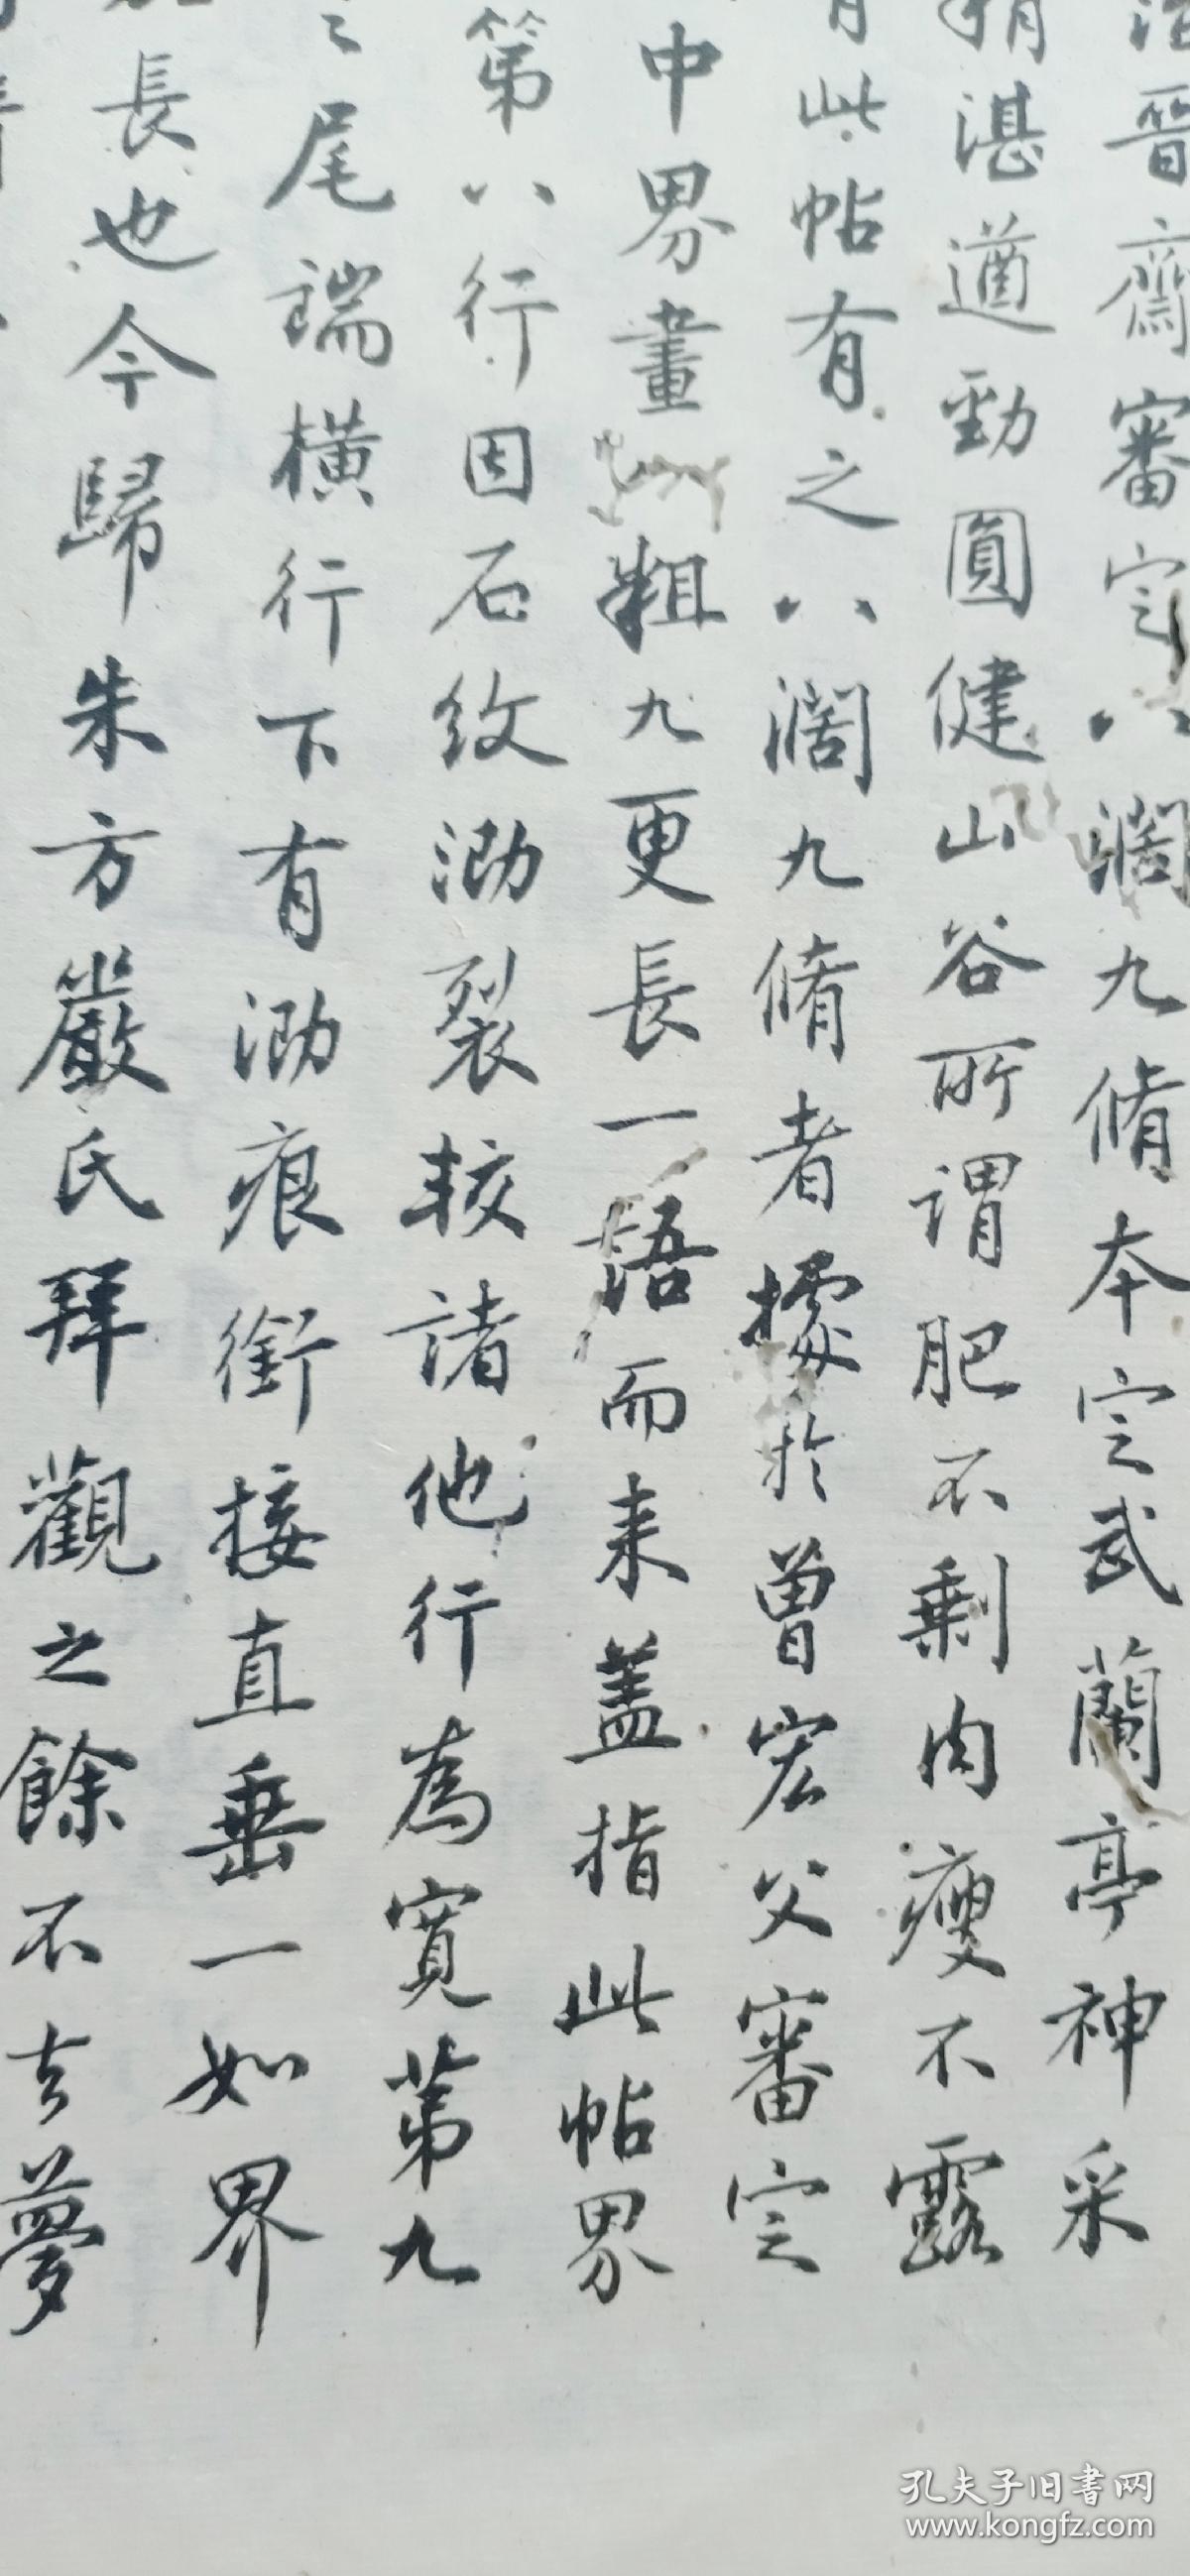 晉齋審定八闊九脩本定武蘭亭神采
湛遒勁圓健山谷所謂肥不剩肉瘦不露
此帖有之八闊九脩者據於曾宏父審定
中界畫粗九更長一語而來蓋指此帖界
第八行因石紋泐裂較諸他行為寬第九
之尾端橫行下有泐痕銜接直垂一如界
長也今歸朱方嚴氏拜觀之餘不去夢
孔夫子旧書网
www.kongfz.com